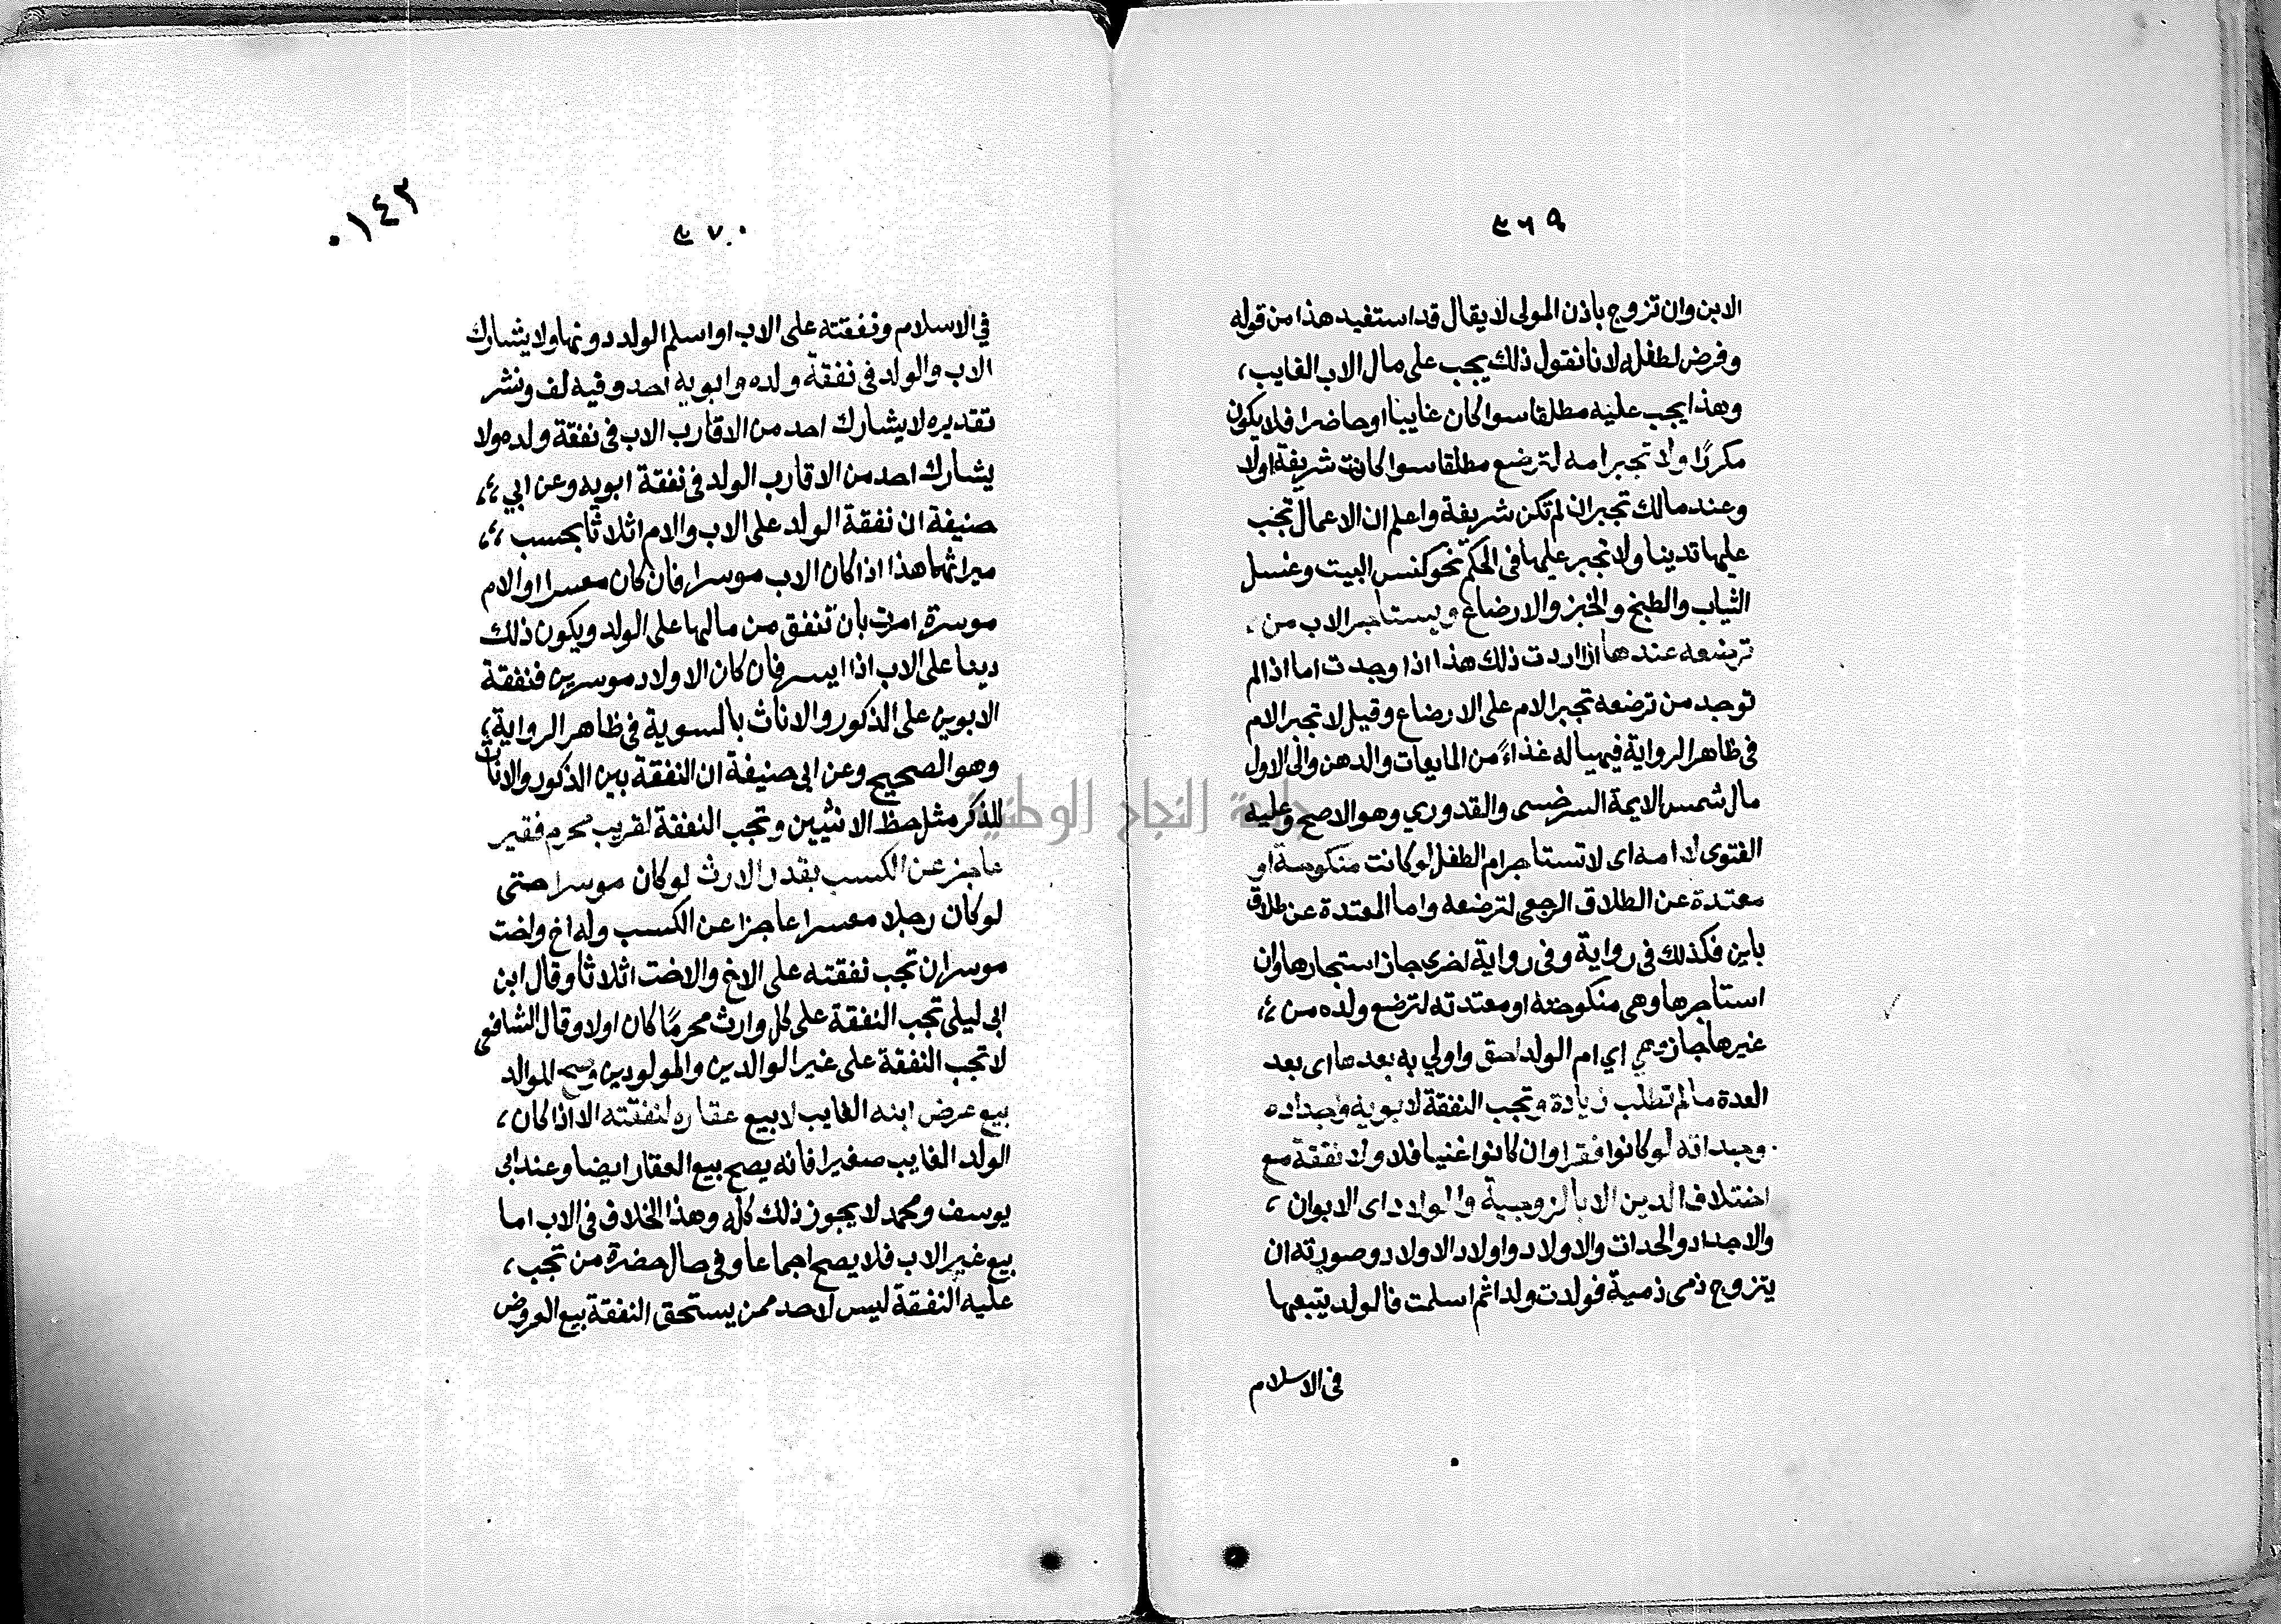 ٤٦٩
الابن وان تزوج باذن المولى لا يقال قد استفيد هذا من قوله
وفرض لطفله لانا نقول ذلك يجب على مال الاب الغايب،
وهذا يجب عليه مطلقا سوا كان غايبا او حاضرا فلا يكون
مكررًا ولا تجبر امه لترضع مطلقا سوا كانت شريفة اولا
وعند مالك تجبر ان لم تكن شريفة واعلم ان الاعمال تجب
عليها تدينا ولا تجبر عليها في الحكم نحو كنس البيت وغسل
الثياب والطبخ والخبز والارضاع ويستاجر الاب من،
ترضعه عندها ان اردت ذلك هذا اذا وجدت اما اذا لم
توجد من ترضعه تجبر الام على الارضاع وقيل لا تجبر الام
في ظاهر الرواية فيهيا له غذاءً من المايعات والدهن والى الاول
مال شمس الايمة السرخسى والقدوري وهو الاصح وعليه
الفتوى لا امه اى لا تستاجر ام الطفل لو كانت منكوحة او
معتدة عن الطلاق الرجعى لترضعه واما المعتدة عن طلاق
باين فكذلك في رواية وفي رواية اخرى جاز استيجارها وان
استاجرها وهى منكوحته او معتدته لترضع ولده من،
غيرها جاز وهي اي ام الولد احق واولي به بعدها اى بعد
العدة ما لم تطلب زيادة وتجب النفقة لابويه واجداده
وجداته لو كانوا فقرا وان كانوا اغنيا فلا ولا نفقة مع
اختلاف الدين الا بالزوجية والولاد اى الابوان،
والاجداد والجدات والاولاد واولاد الاولاد وصورته ان
يتزوج ذمى ذمية فولدت ولدا ثم اسلمت فالولد يتبعها
في الاسلام
٠١٤٢
٤٧٠
في الاسلام ونفقته على الاب او اسلم الولد دونها ولا يشارك
الاب والولد في نفقة ولده وابويه احد وفيه لف ونشر
تقديره لا يشارك احد من الاقارب الاب في نفقة ولده ولا
يشارك احد من الاقارب الولد في نفقة ابويه وعن ابي،
حنيفة ان نفقة الولد على الاب والام اثلاثا بحسب،
ميراثهما هذا اذا كان الاب موسرا فان كان معسرا والام
موسرة امرت بان تنفق من مالها على الولد ويكون ذلك
دينا على الاب اذا ايسر فان كان الاولاد موسرين فنفقة
الابوين على الذكور والاناث بالسوية في ظاهر الرواية،
وهو الصحيح وعن ابى حنيفة ان النفقة بين الذكور والاناث
للذكر مثل حظ الانثيين وتجب النفقة لقريب محرم فقير
عاجز عن الكسب بقدر الارث لو كان موسرا حتى
لو كان رجلا معسرا عاجزا عن الكسب وله اخ واخت
موسران تجب نفقته على الاخ والاخت اثلاثا وقال ابن
ابى ليلى تجب النفقة على كل وارث محرمًا كان اولا وقال الشافعى
لا تجب النفقة على غير الوالدين والمولودين وصح للوالد
بيع عرض ابنه الغايب لا بيع عقاره لنفقته الا اذا كان،
الولد الغايب صغيرا فانه يصح بيع العقار ايضا وعند ابى
يوسف ومحمد لا يجوز ذلك كله وهذا الخلاف في الاب اما
بيع غير الاب فلا يصح اجماعا وفي حال حضرة من تجب،
عليه النفقة ليس لاحد ممن يستحق النفقة بيع العروض
جامعة النجاح الوطنية